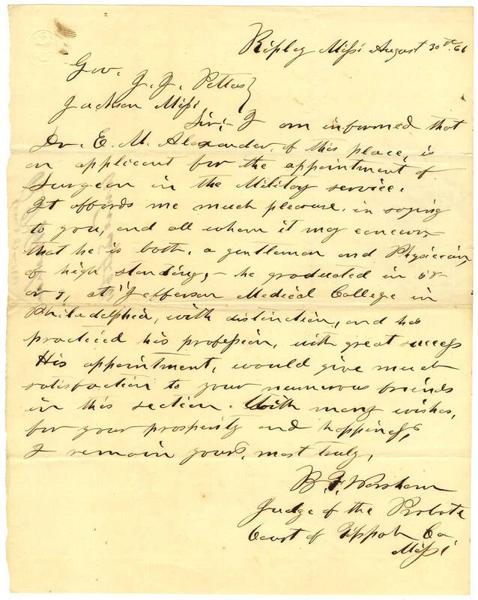 Ripley Missi August 30th. 61
Gov. J. J. Pettus }
Jackson Missi
Sir; I am informed that
Dr. E. M. Alexander, of this place, is
an applicant for the appointment of
Surgeon in the Military service.
It affords me much pleasure, in saying
to you, and all whom it may concern
that he is both, a gentleman and Physician
of high standing, – he graduated in 6 or
or 7, at Jefferson Medical College in
Philadelphia, with distinction, and has
practiced his profession, with great success
His appointment, would give much
satisfaction to your numerous friends
in this section. With many wishes,
for your prosperity and happiness,
I remain yours, most truly,
B. F. Worsham
Judge of the Probate
Court of Tippah Co.
Missi